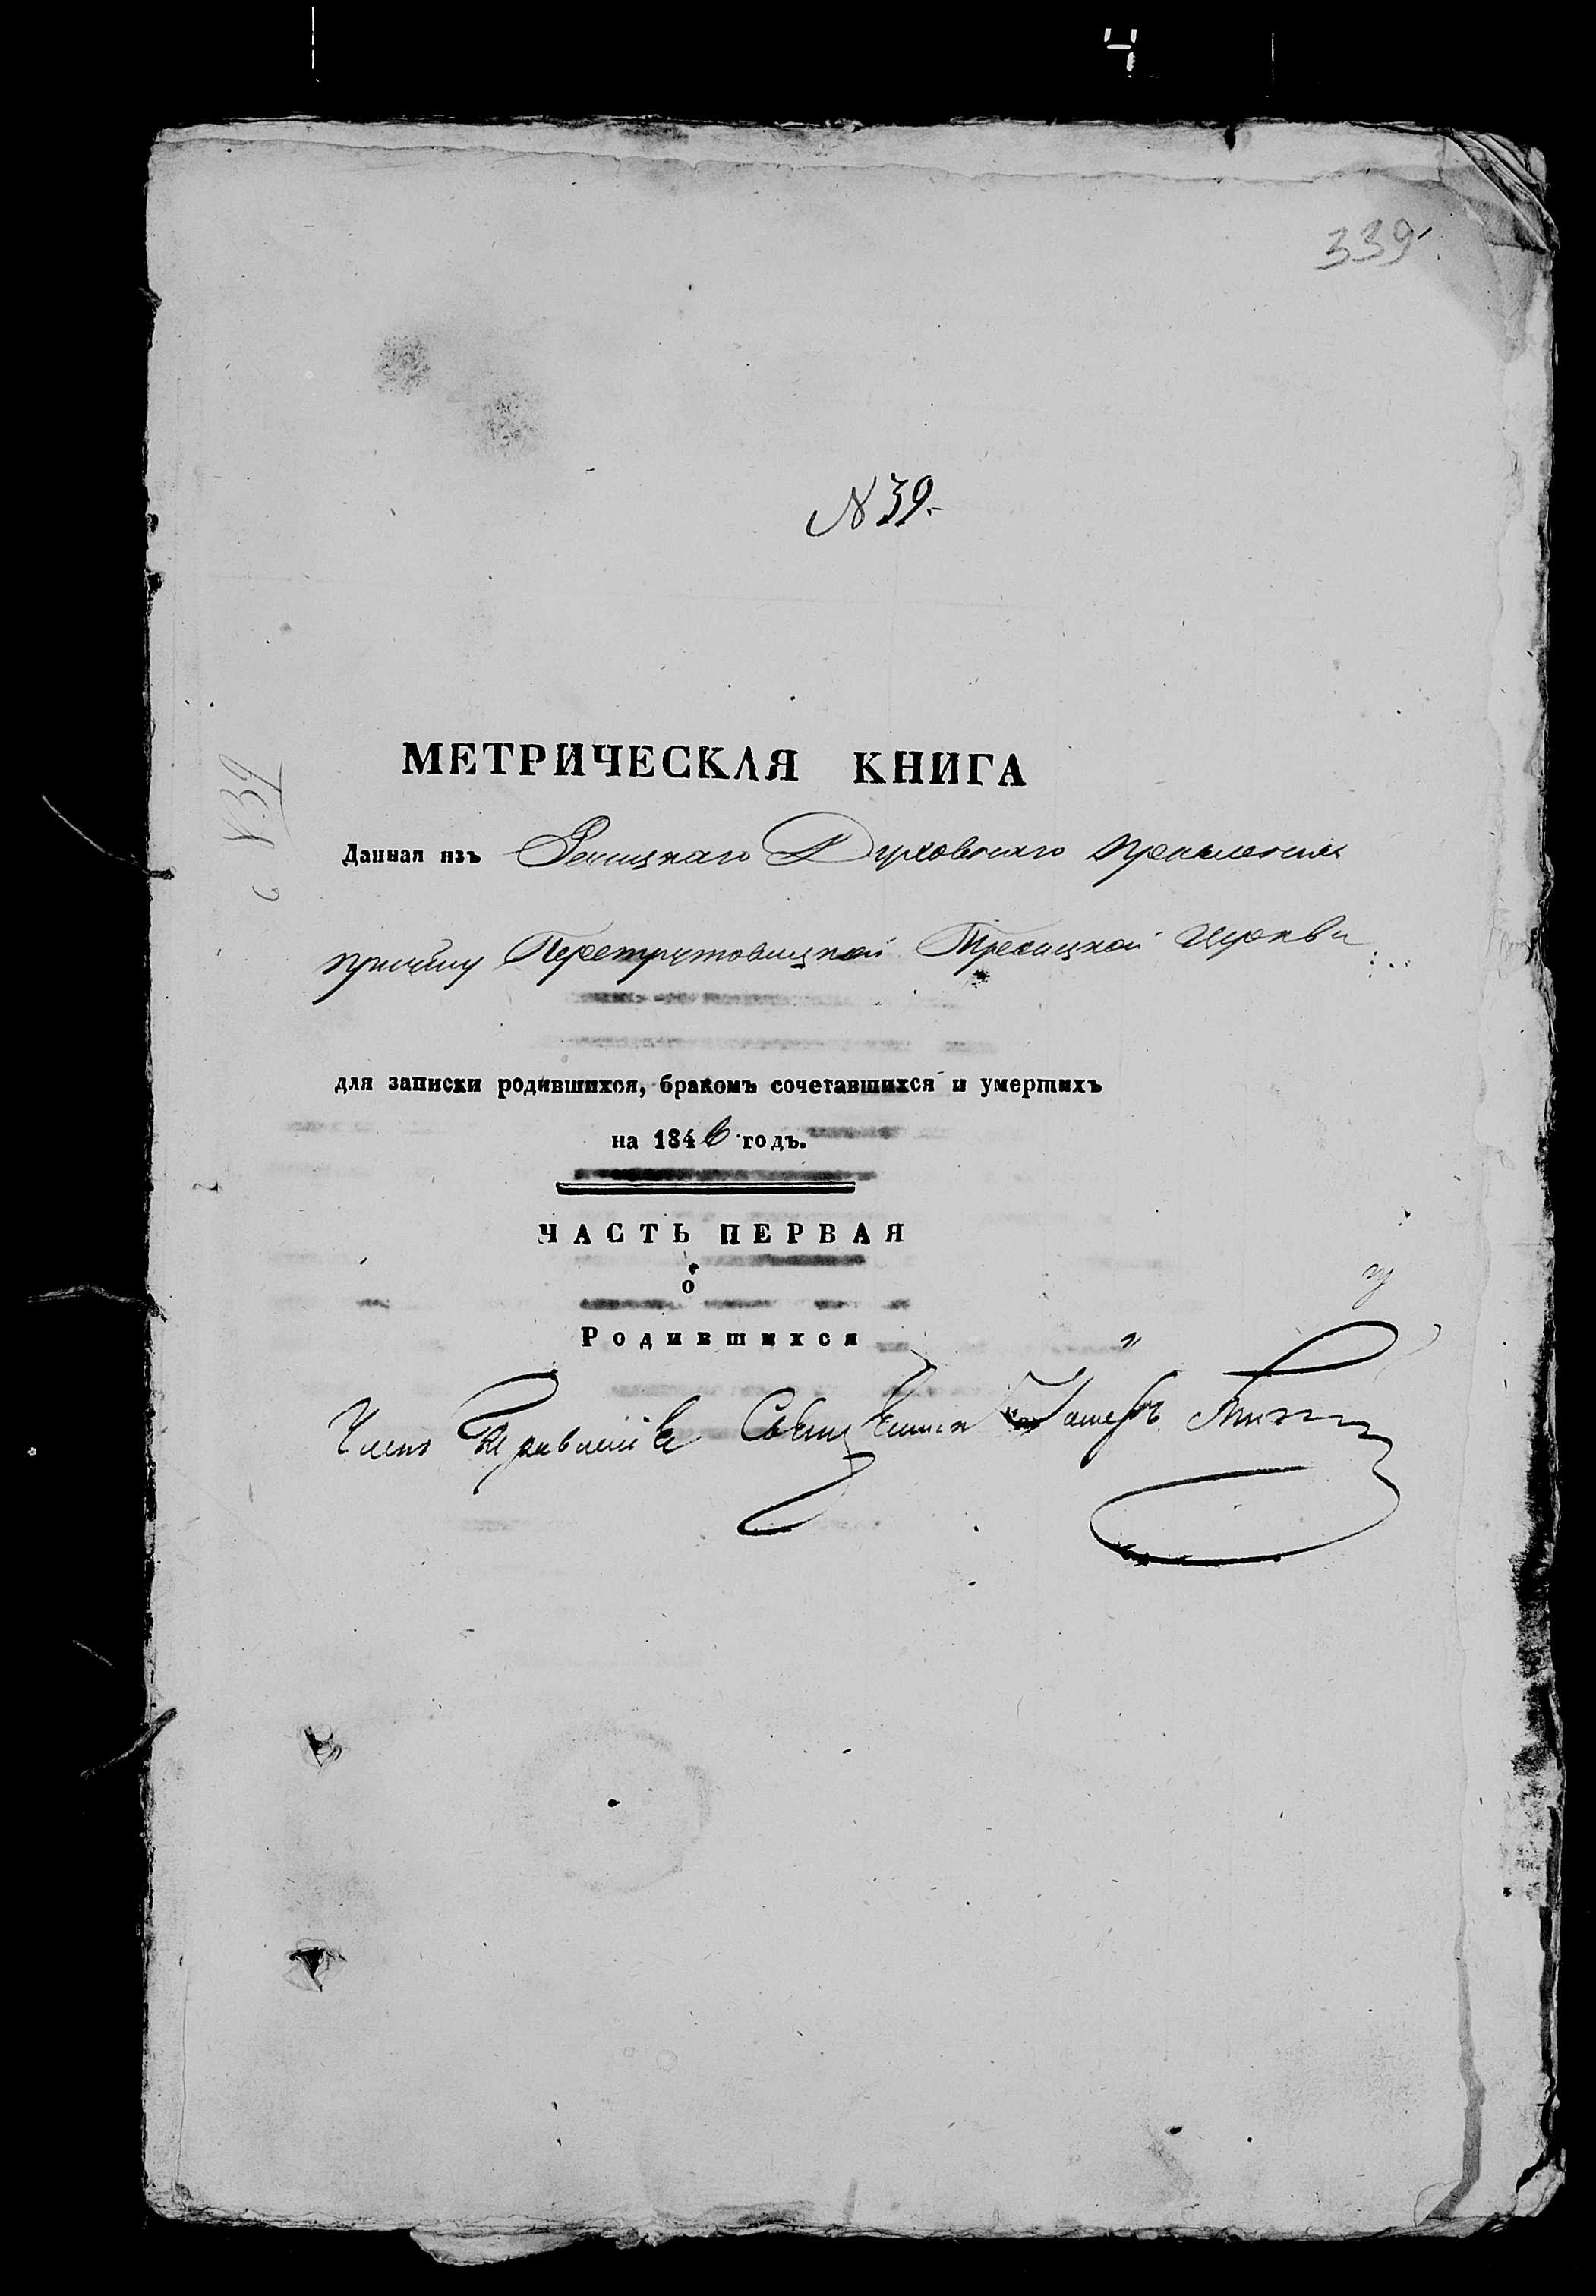 4
339
N 39.
N 39
МЕТРИЧЕСКАЯ КНИГА
Данная изъ Духовнаго Правленія
причту Перетрутовицкой Троицкой Церкви
для записки родившихся, бракомъ сочетавшихся и умершихъ
на 1846 годъ.
ЧАСТЬ ПЕРВАЯ
о
Родившихся
Членъ Правленія Священникъ